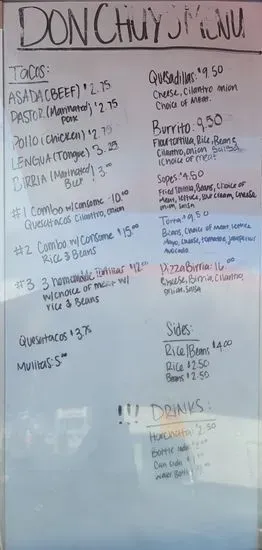 DON CHUY'S MENU
Tacos:
ASADA (BEEF) $2.75
PASTOR (Marinated Pork) 2.75
Pollo (Chicken) $2.75
LENGUA (Tongue) 3.25
BIRRIA (Marinated Beef) $3.00
#1 Combo w/consome $10.00
Quesatacos Cilantro, onion
#2 Combo w/consome $15.00
Rice & Beans
#3 3 homemade Tortillas $12.00
w/choice of meat w/
rice & Beans
Quesatacos $3.75
Mulitas: 5.00
Quesadillas: $9.50
Cheese, Cilantro onion
Choice of Meat.
Burrito: 9.50
Flour tortilla, Rice, Beans,
Cilantro, onion Salsa
Choice of meat
Sopes: $4.50
Fried Tortilla, Beans, Choice of
Meat, lettuce, sour cream, Cheese
onion, Salsa
Torta: 9.50
Beans, Choice of meat, lettuce
Mayo, Cheese, tomatoe, jalapeños
Avocado
Pizza Birria: 16.00
Cheese, Birria, Cilantro,
onion, Salsa
Sides:
Rice/Beans $4.00
Rice $2.50
Beans $2.50
!!! DRINKS:
Horchata: 2.50
Bottle soda
Can soda
Water Bottle